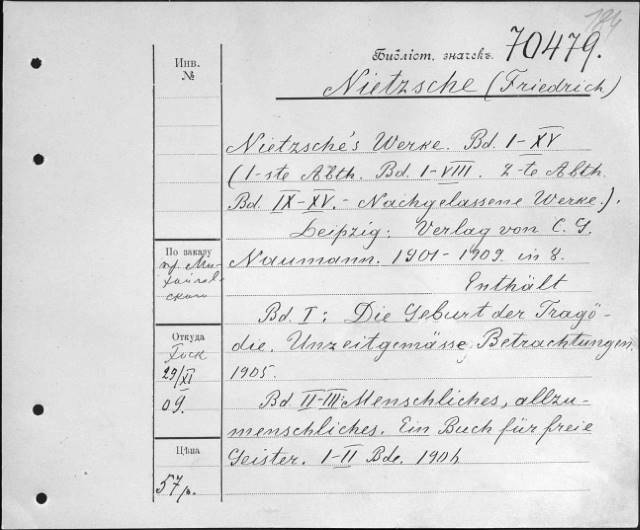 184
Инв.
№
Библіот. значекъ 70479.
Nietzsche (Friedrich)
Nietzsche's Werke. Bd. I-XV
(1-ste Abth. Bd. I-VIII. 2-te Abth.
Bd. IX-XV. - Nachgelassene Werke.).
Leipzig: Verlag von C. G.
Naumann. 1901-1909. in 8.
Enthält
Bd. I: Die Geburt der Tragö-
die. Unzeitgemässe Betrachtungen
1905.
Bd II-III: Menschliches, allzu-
menschliches. Ein Buch für freie
Geister. I-II Bde. 1904
По заказу
пр. Ми-
хайлов-
скаго
Откуда
Fock
29/XI
09.
Цѣна
57 р.